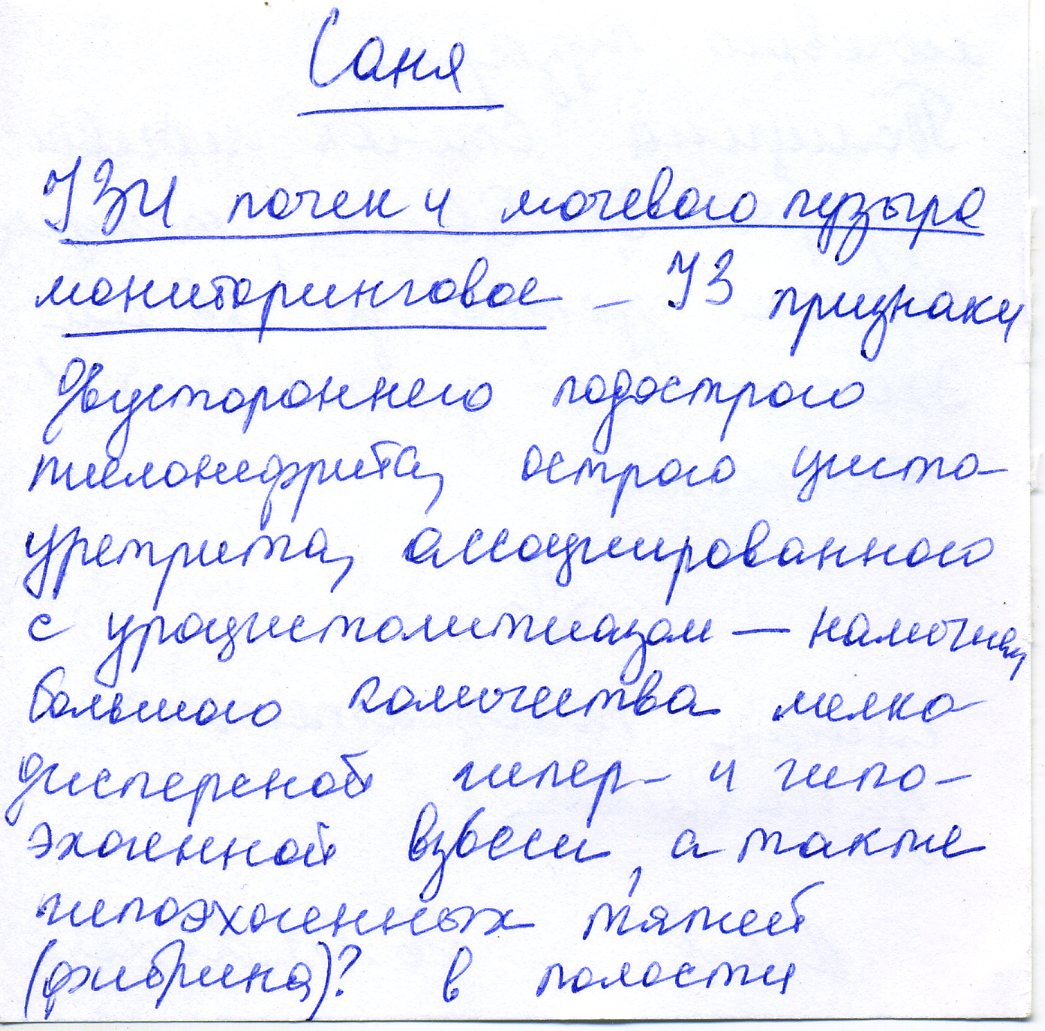 Саня
УЗИ почек и мочевого пузыря
мониторинговое – УЗ признаки
двустороннего подострого
пиелонефрита, острого цисто-
уретрита, ассоциированного
с уроцистолитиазом — наличия
большого количества мелко-
дисперсной гипер- и гипо-
эхогенной взвеси, а также
гипоэхогенных тяжей
(фибрина)? в полости